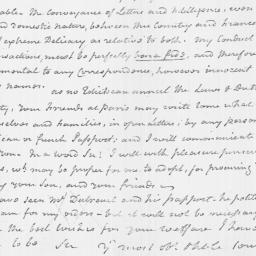 able. The conveyance of Letters and Intelligence, even
and Domestic nature, between this Country and France
extreme Delicacy as relative to both. My Conduct
nsactions, must be perfectly bona fide, and therefore
mental to any Correspondence, however innocent
names. as no Edict can annul the Laws & Duti
ty, Your friends at Paris may write to me what
selves and Families, in open letters; by any person
ican or french Passport; and I will communicate
from. In a word Sir; I will with pleasure pursue
es, wch may be proper for me to adopt, for procuring
you your son, and your friends.
have seen Mr Dubreuil and his passport. he polite
am for my views — but it will not be necessary
the best wishes for your welfare I have
to be Sir Yr most obt Hble